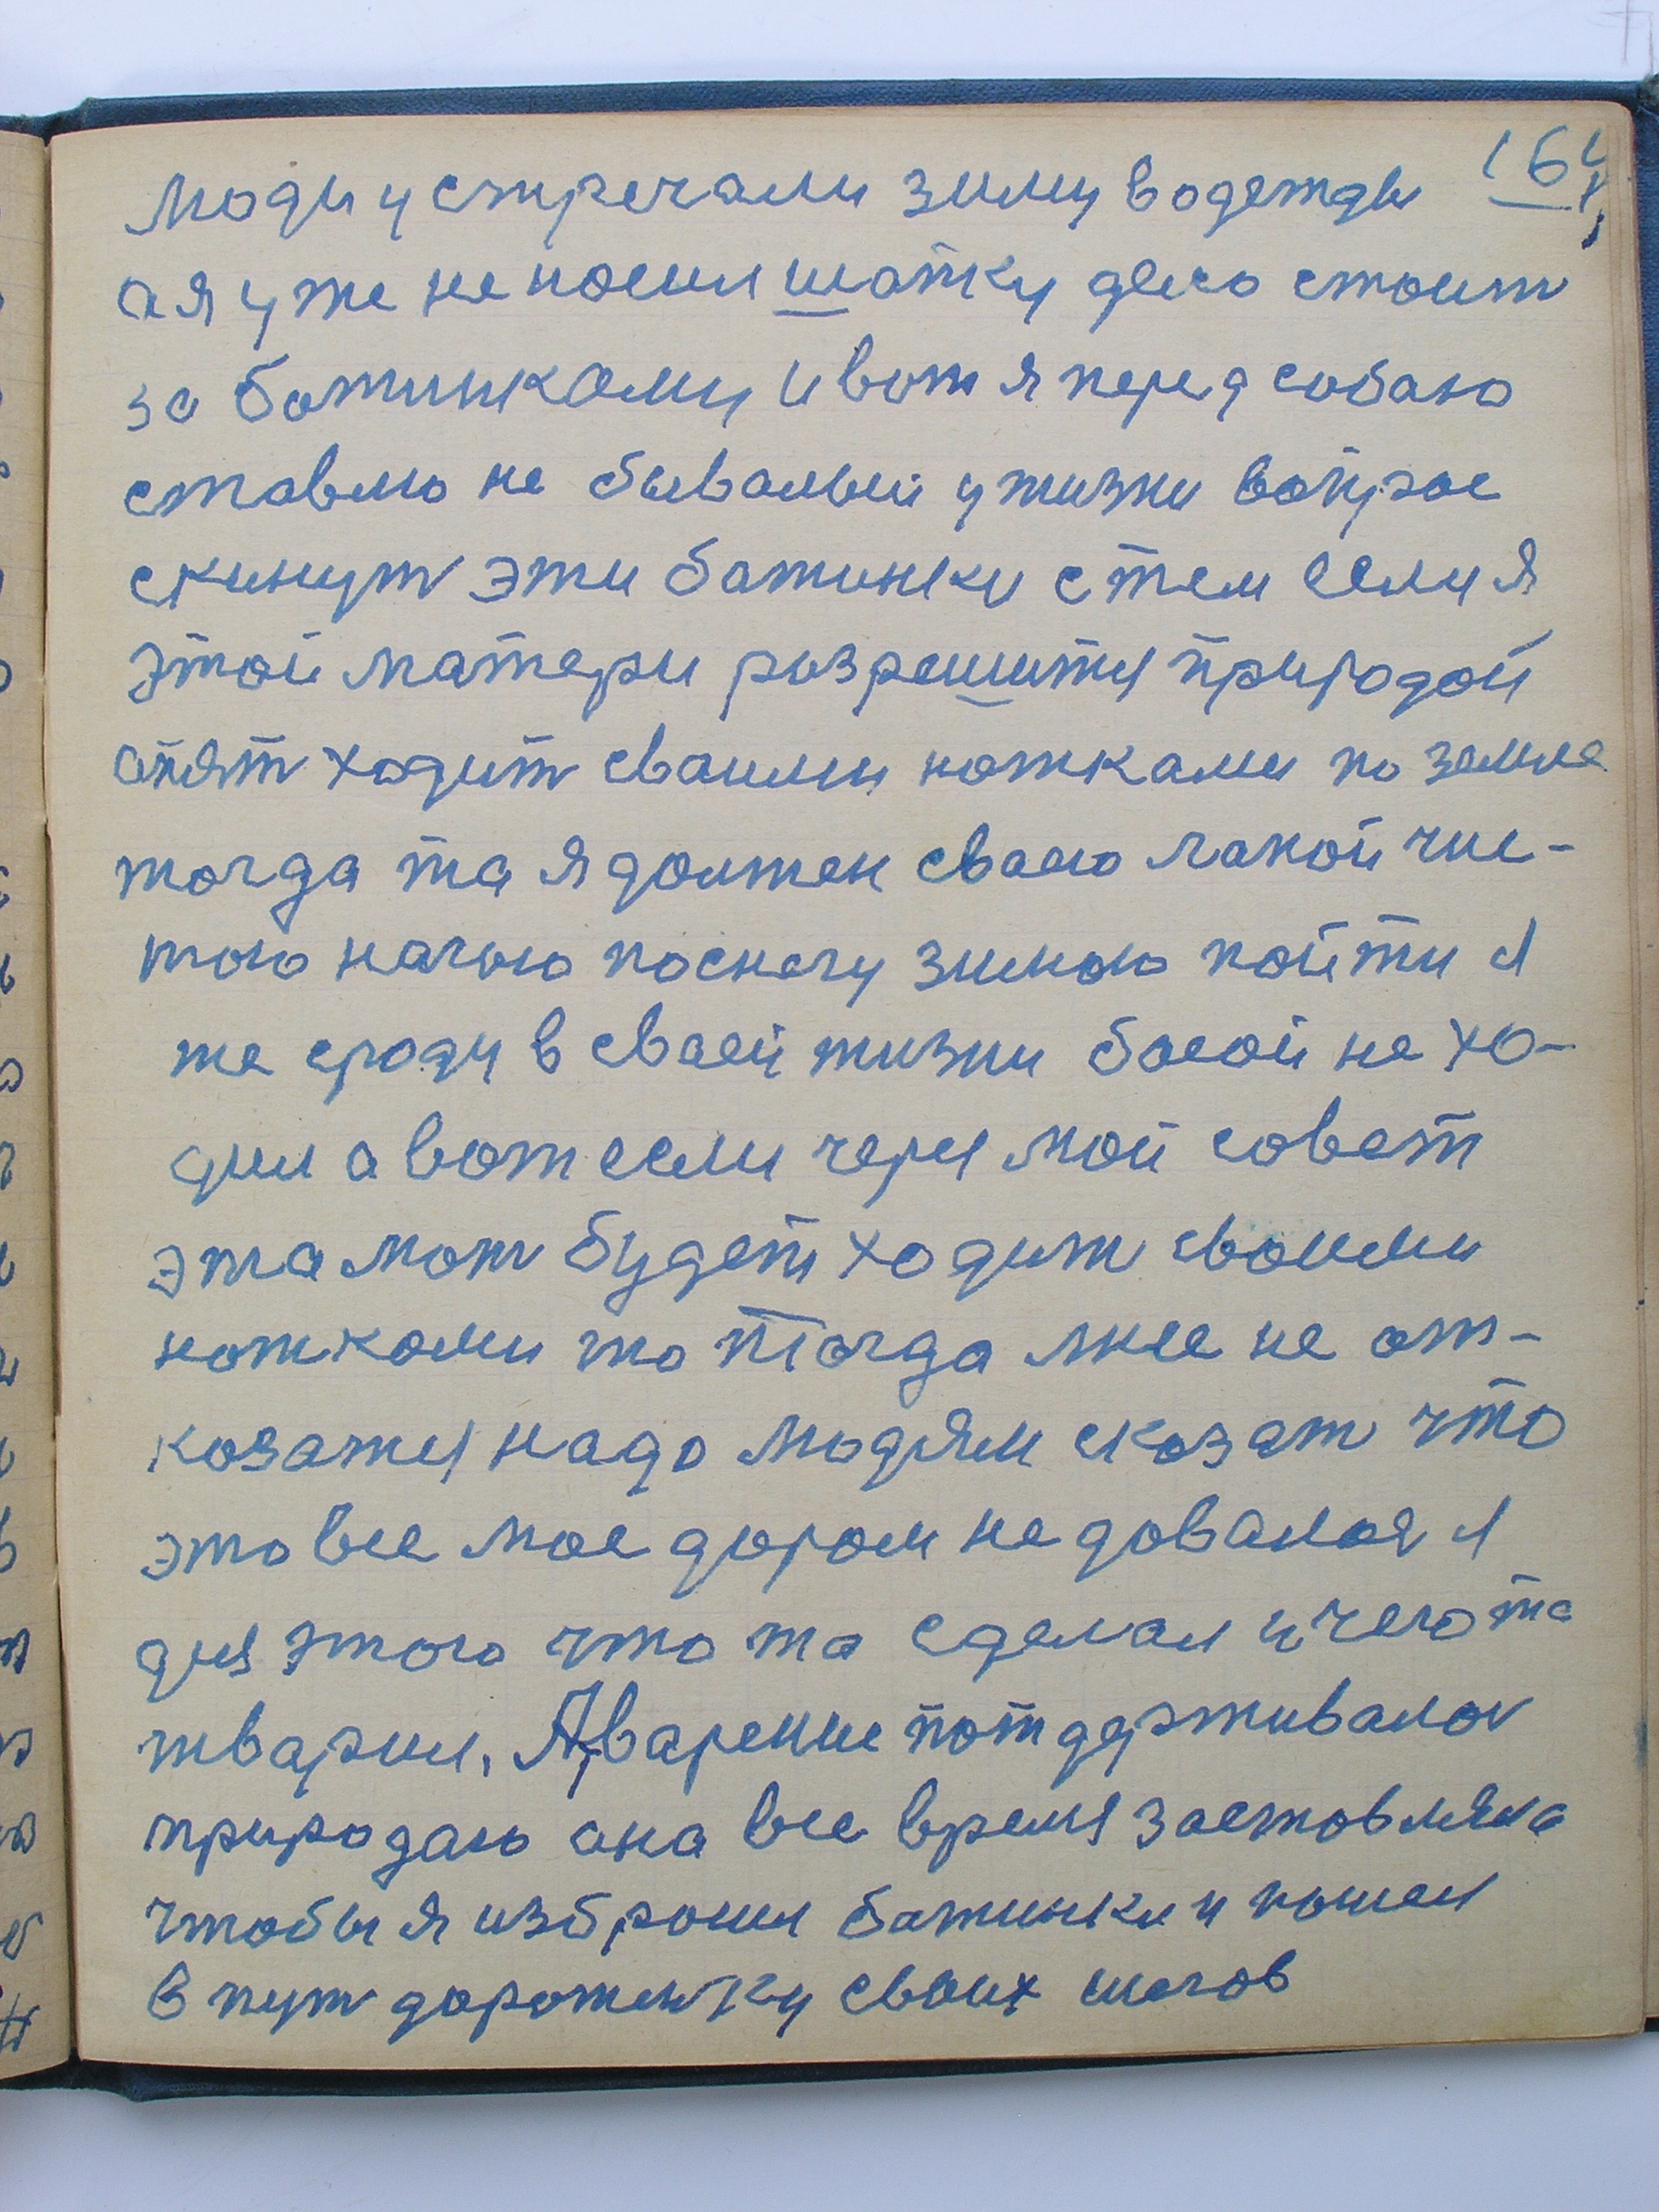 164
люди устречали зиму водежды
ая уже не носил шапку дело стоит
за ботинками и вот я перед собаю
ставлю не бывалый ужизни вопрос
скинут эти батинки с тем если я
этой матери разрешится природой
опят ходит сваими ножками по земле
тогда та я должен сваею такой чис-
тою ногою поснегу зимою пойти я
же сроду в сваей жизни босой не хо-
дил а вот если через мой совет
эта мат будет ходит своими
ножками то тогда мне не от-
козатся надо людям сказат что
это все мое даром не довалос я
для этого что та сделал и чего та
тварил. Тварение потдерживалос
природаю она все время заставляла
чтобы я изброшил батинки и пошел
в пут дороженку сваих шагов